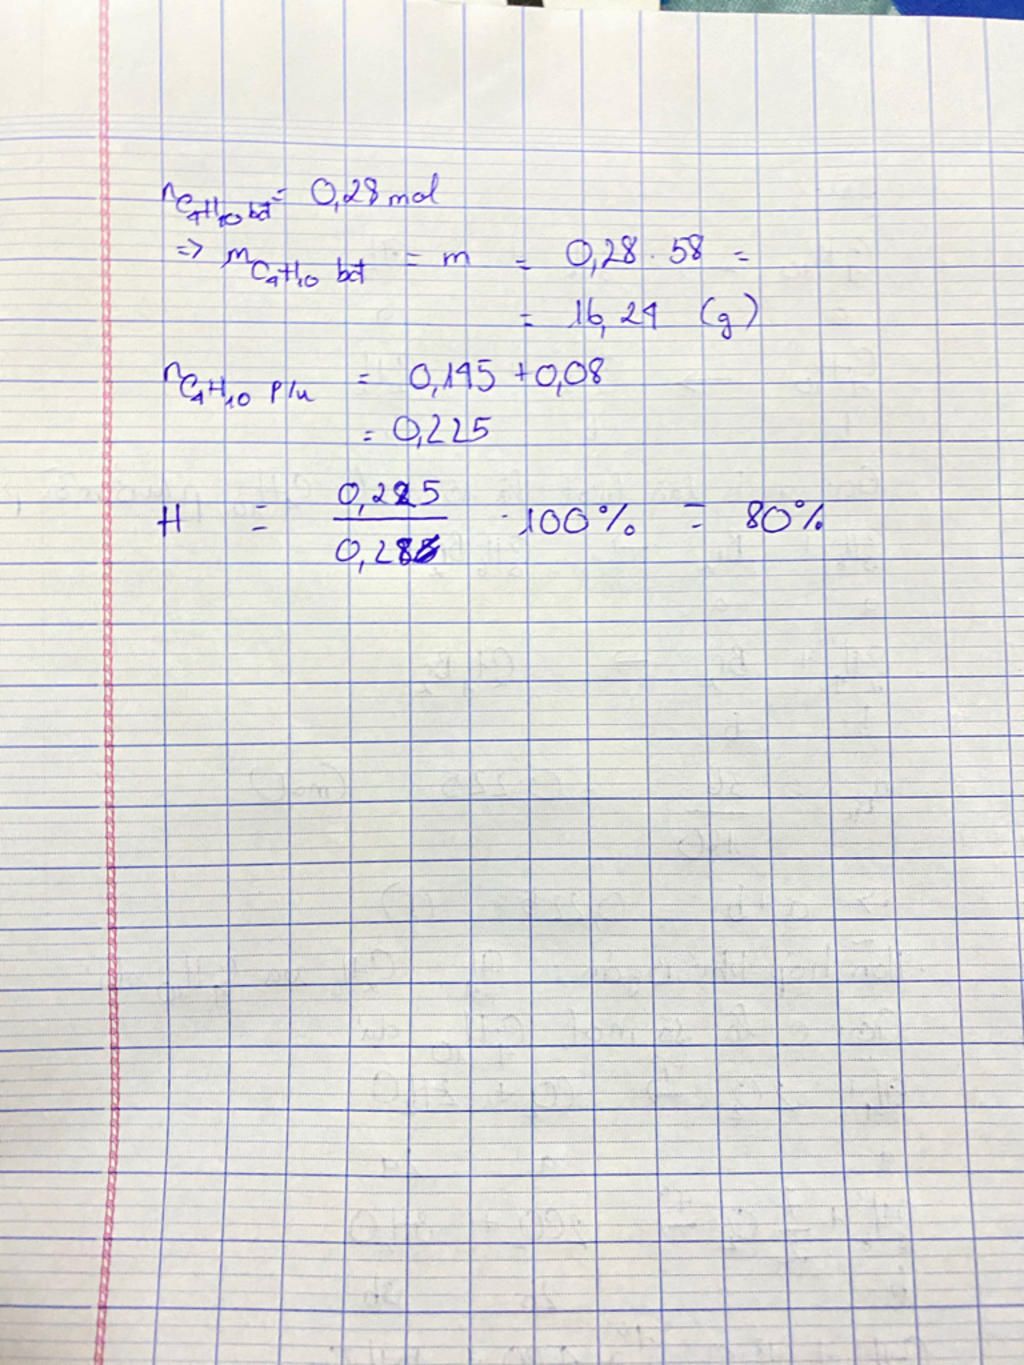 nC4H10 bđ = 0,28 mol
=> mC4H10 bđ = m = 0,28 . 58 =
= 16,24 (g)
nC4H10 p/u = 0,145 + 0,08
= 0,225
H = 0,225 / 0,28 . 100% = 80%